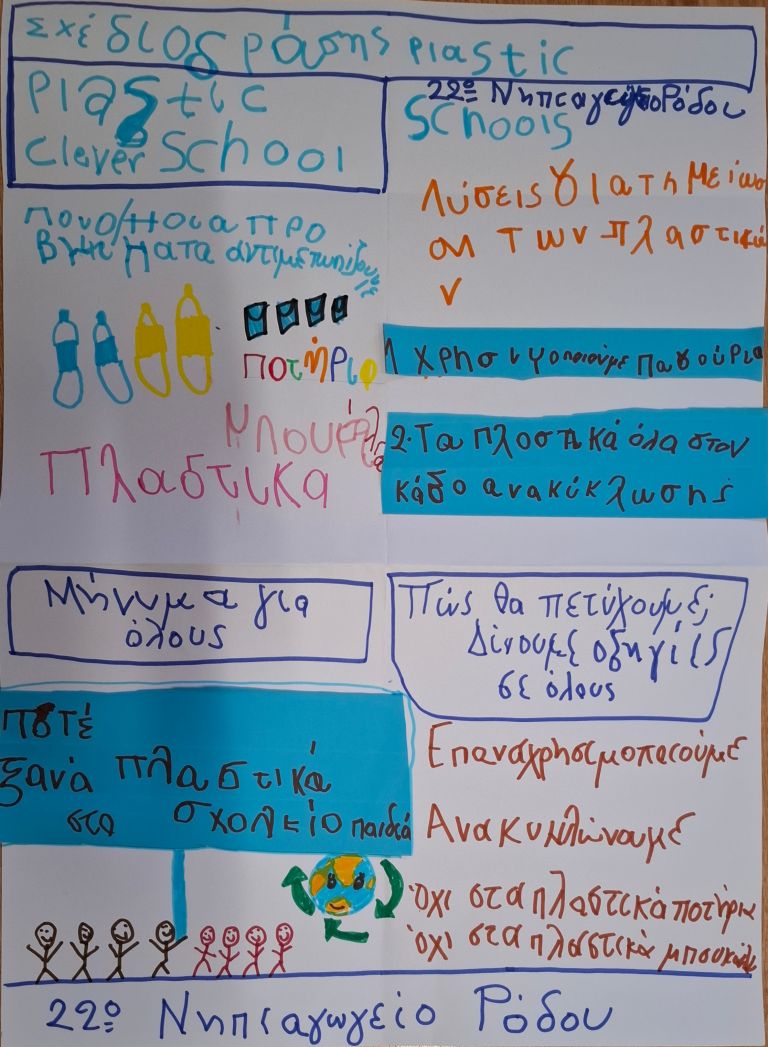 Σχέδιο δράσης Plastic
Plastic
Clever School
22ο Νηπιαγωγείο Ρόδου
Schools
Ποιο/Ποια προ
βλήματα αντιμετωπίζουμε
ποτήρια
Μπουκάλια
Πλαστικά
Λύσεις για τη μείωσ
ση των πλαστικώ
ν
1 χρησιμοποιούμε παγούρια
2. Τα πλαστικά όλα στον
κάδο ανακύκλωσης
Μήνυμα για
όλους
Πώς θα πετύχουμε;
Δίνουμε οδηγίες
σε όλους
Ποτέ
ξανά πλαστικά
στο σχολείο παιδιά
Επαναχρησιμοποιούμε
Ανακυκλώνουμε
Όχι στα πλαστικά ποτήρια
Όχι στα πλαστικά μπουκάλια
22ο Νηπιαγωγείο Ρόδου